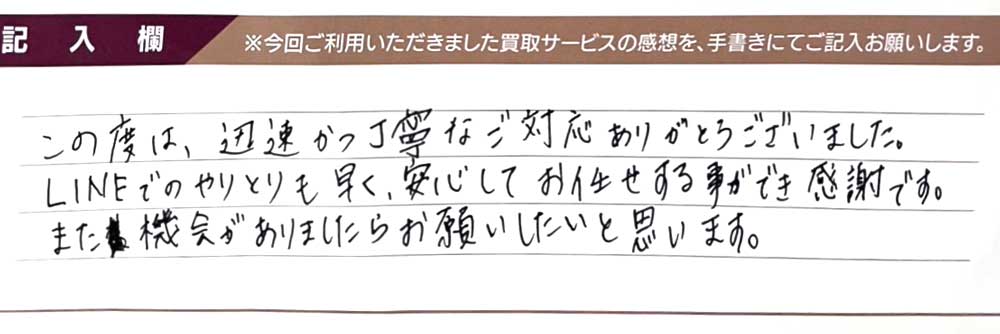 記入欄
※今回ご利用いただきました買取サービスの感想を、手書きにてご記入お願いします。
この度は、迅速かつ丁寧なご対応ありがとうございました。
LINEでのやりとりも早く、安心してお任せする事ができ感謝です。
また機会がありましたらお願いしたいと思います。